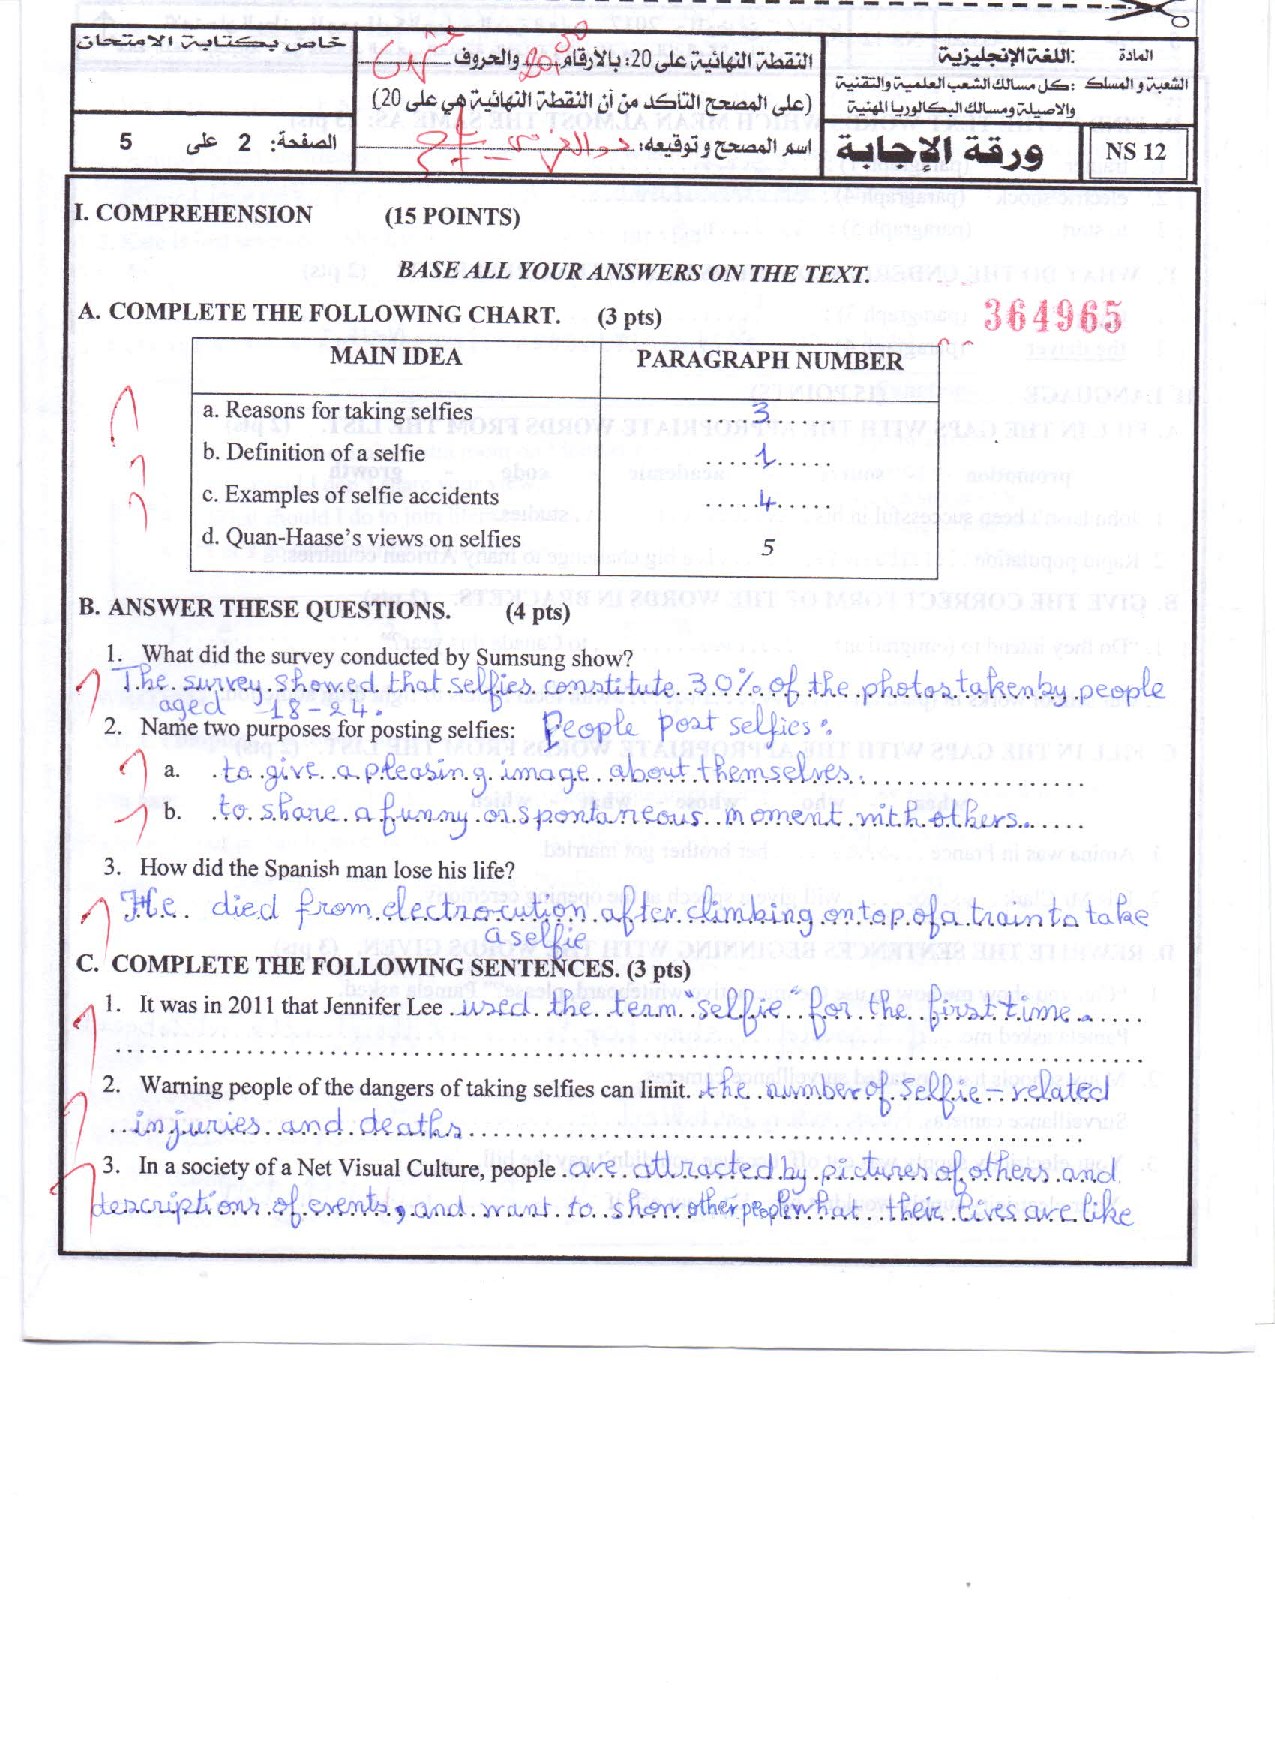 خاص بكتابة الامتحان
النقطة النهائية على 20: بالأرقام 20,00 والحروف
(على المصحح التأكد من أن النقطة النهائية هي على 20)
المادة :اللغة الإنجليزية
الشعبة و المسلك :كل مسالك الشعب العلمية والتقنية
والاصيلة ومسالك البكالوريا المهنية
الصفحة: 2 على 5
اسم المصحح و توقيعه:
ورقة الإجابة
NS 12
I. COMPREHENSION (15 POINTS)
BASE ALL YOUR ANSWERS ON THE TEXT.
A. COMPLETE THE FOLLOWING CHART. (3 pts)
364965
MAIN IDEA PARAGRAPH NUMBER
a. Reasons for taking selfies 3
b. Definition of a selfie 1
c. Examples of selfie accidents 4
d. Quan-Haase's views on selfies 5
B. ANSWER THESE QUESTIONS. (4 pts)
1. What did the survey conducted by Sumsung show?
The survey showed that selfies constitute 30% of the photos taken by people
aged 18-24.
2. Name two purposes for posting selfies: People post selfies:
a. to give a pleasing image about themselves.
b. to share a funny or spontaneous moment with others.
3. How did the Spanish man lose his life?
He died from electrocution after climbing on top of a train to take
a selfie
C. COMPLETE THE FOLLOWING SENTENCES. (3 pts)
1. It was in 2011 that Jennifer Lee used the team "selfie" for the first time.
2. Warning people of the dangers of taking selfies can limit. the number of selfie-related
injuries and deaths
3. In a society of a Net Visual Culture, people are attracted by pictures of others and
descriptions of events, and want to show other people what their lives are like